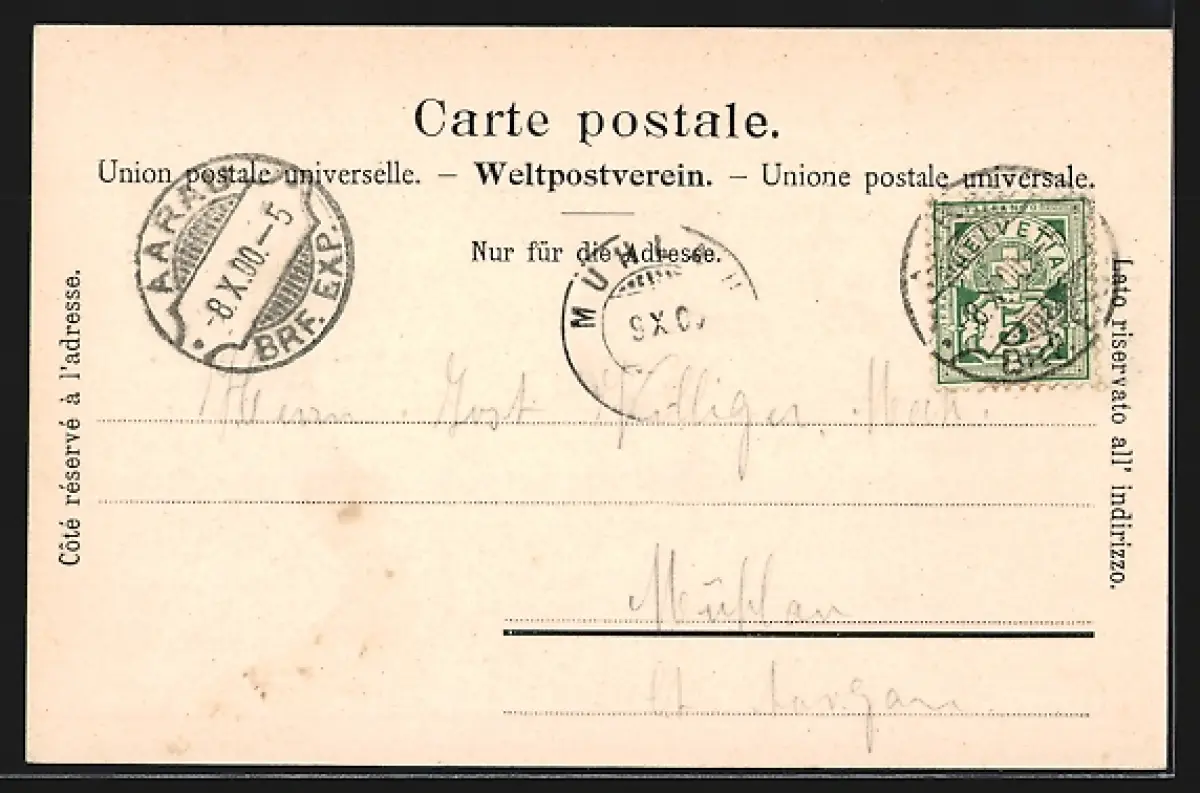 Carte postale.
Union postale universelle. – Weltpostverein. – Unione postale universale.
Nur für die Adresse.
Côté réservé à l'adresse.
Lato riservato all' indirizzo.
AARAU
-8.X.00.-5
BRF. EXP.
MÜHLAU
9 X 0
HELVETIA
5
Herrn Jost Villiger
Mühlau
Ct. Aargau